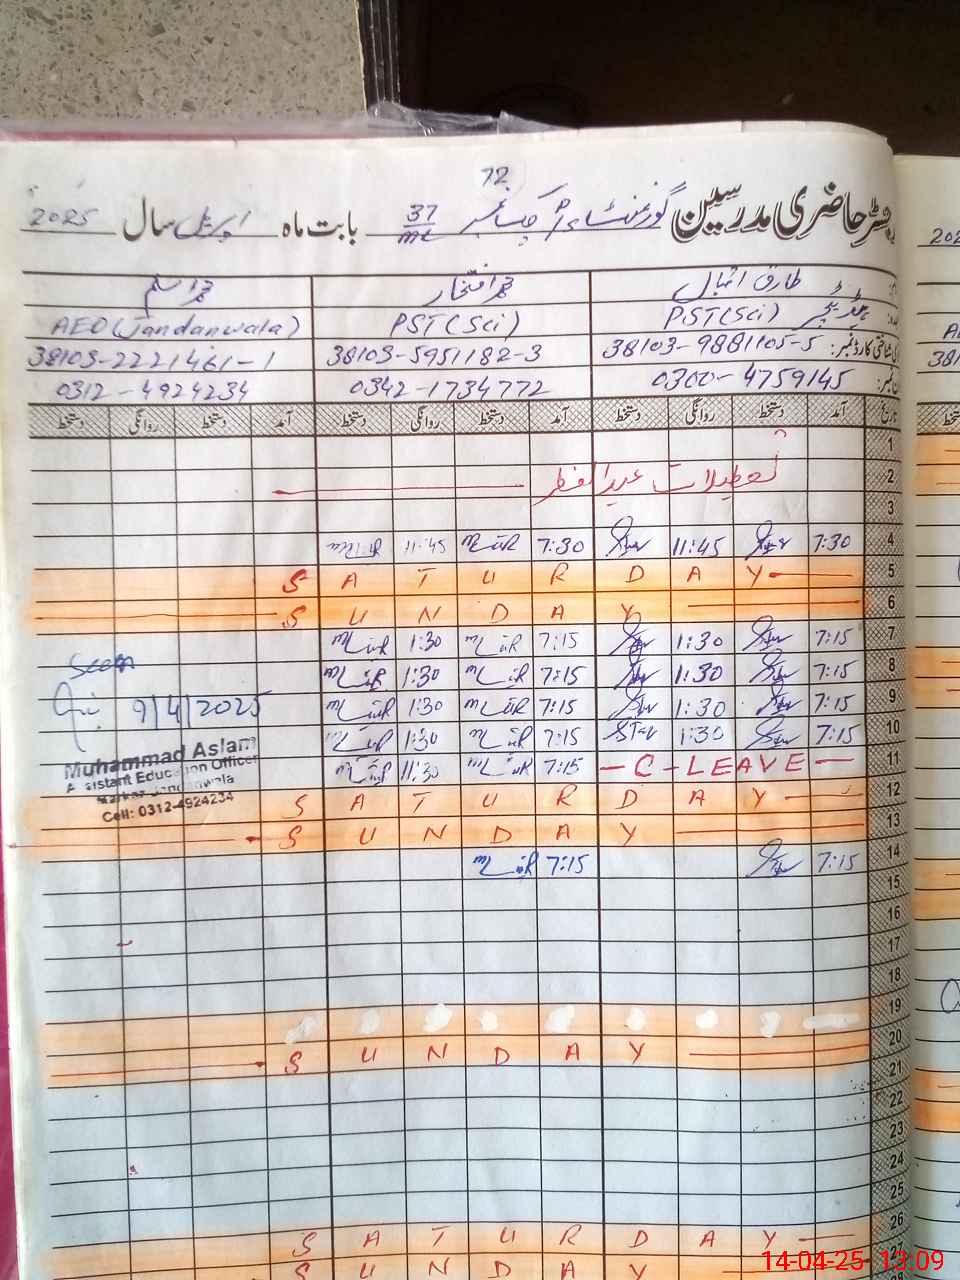 72
رجسٹر حاضری مدرسین گورنمنٹ پرائمری سکول چک نمبر 37/ML بابت ماہ اپریل سال 2025
طارق اقبال محمد افتخار محمد اسلم
ہیڈ ٹیچر PST(Sci) PST(Sci) AEO(Jandanwala)
شناختی کارڈ نمبر: 38103-9881105-5 38103-5951182-3 38103-2221461-1
نمبر: 0300-4759145 0342-1734772 0312-4924234
تاریخ آمد دستخط روانگی دستخط آمد دستخط روانگی دستخط آمد دستخط روانگی دستخط
1
2 تعطیلات عید الفطر
3
4 7:30 11:45 7:30 11:45
5 SATURDAY
6 SUNDAY
7 7:15 1:30 7:15 1:30
8 7:15 1:30 7:15 1:30
Seen
9 7:15 1:30 7:15 1:30
9/4/2025
10 7:15 1:30 7:15 1:30
Muhammad Aslam
Assistant Education Officer
Markaz Jandanwala
Cell: 0312-4924234
11 C-LEAVE 7:15 11:30
12 SATURDAY
13 SUNDAY
14 7:15 7:15
15
16
17
18
19
20 SUNDAY
21
22
23
24
25
26 SATURDAY
27 SUNDAY
202
38
14-04-25 13:09